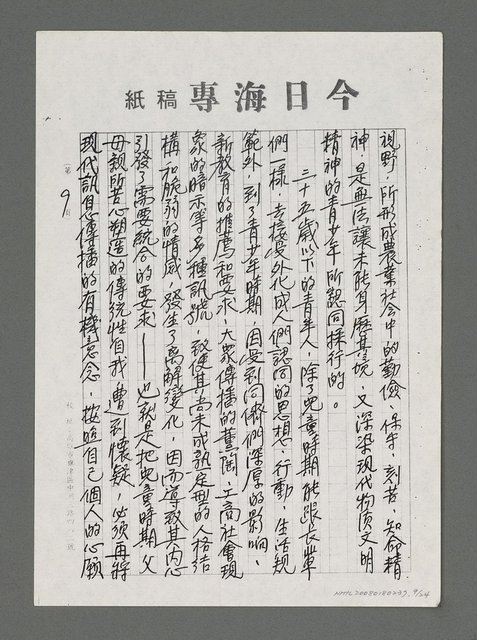 今日海專稿紙
視野，所形成農業社會中的勤儉、保守、刻苦、知命精
神，是無法讓未能身歷其境，又深染現代物質文明
精神的青少年所認同採行的。
二十五歲以下的青年人，除了兒童時期能跟長輩
們一樣，去接受外化成人們認同的思想、行動、生活規
範外，到了青少年時期，因受到同儕們深厚的影响，
新教育的推薦和要求，大眾傳播的薰陶，工商社會現
象的暗示等多種訊號，致使其尚未成熟定型的人格結
構和脆弱的情感，發生了离解變化，因而導致其內心
引發了需要統合的要求——也就是把兒童時期父
母親所苦心塑造的傳統性自我遭到懷疑，必須再將
現代訊息傳播的有機意念，按照自己個人的心願
第 9 頁
NMTL20080180237 9/24